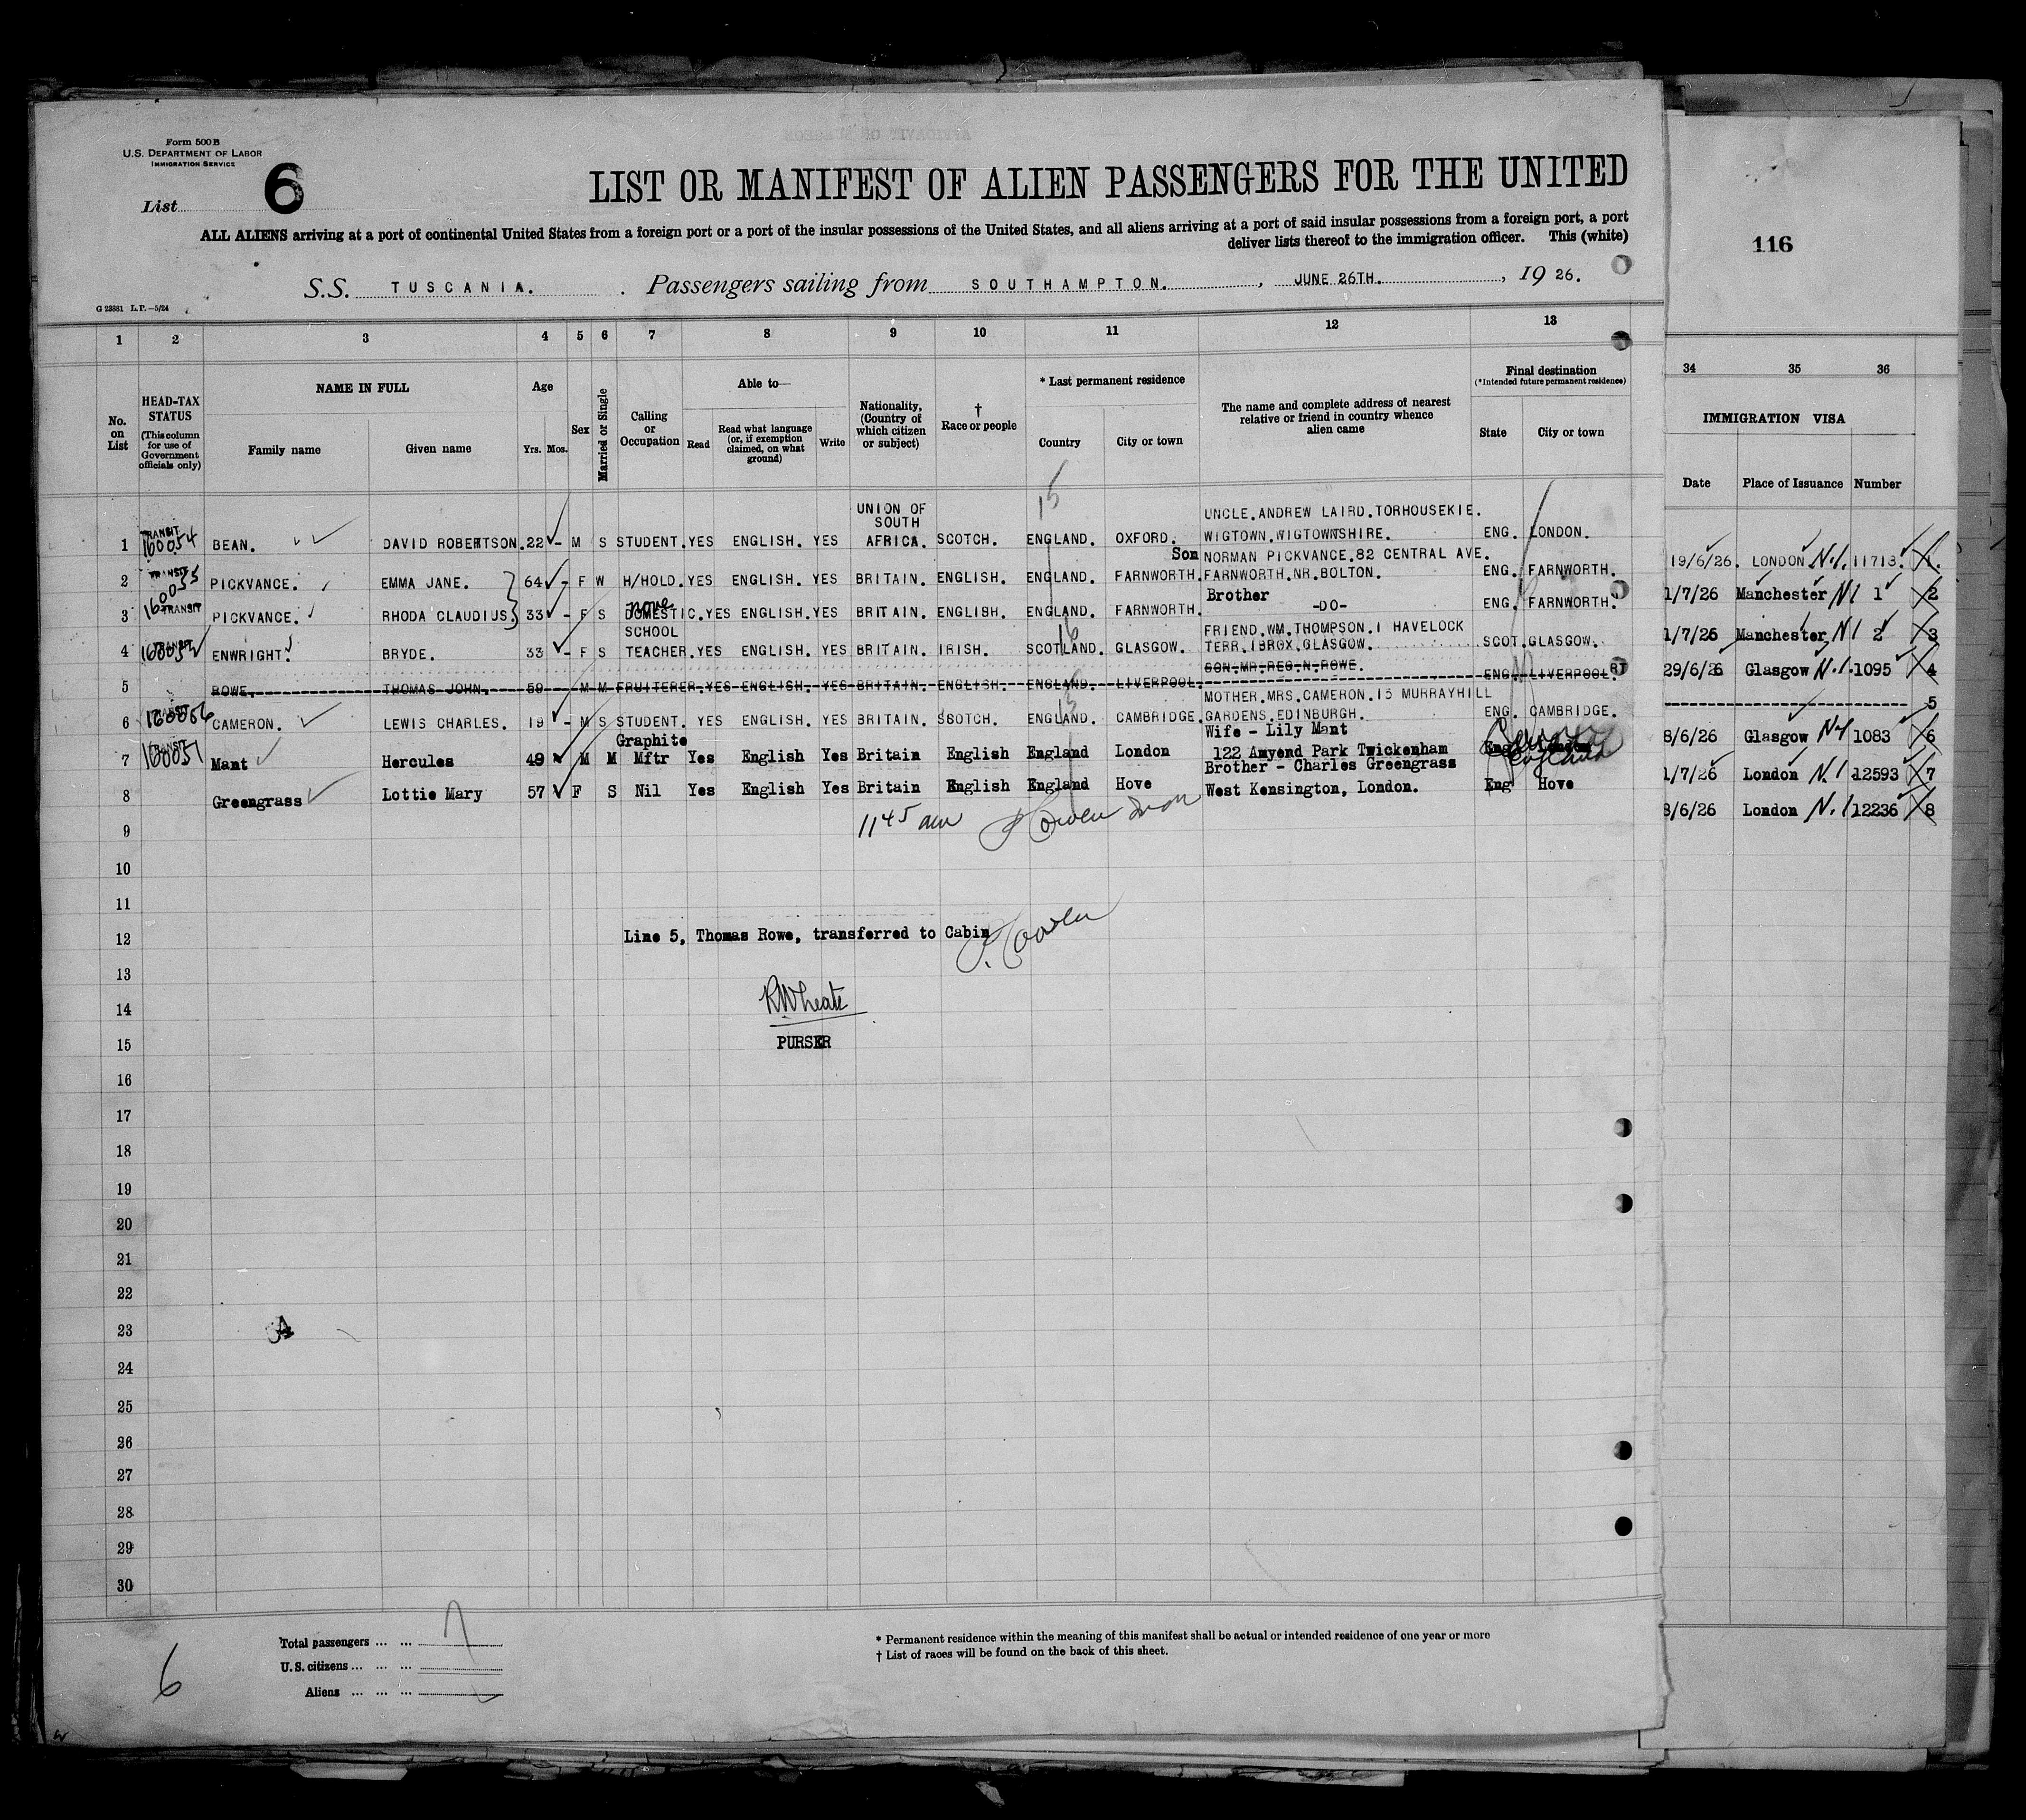 Form 500 B
U.S. DEPARTMENT OF LABOR
IMMIGRATION SERVICE
List 6
LIST OR MANIFEST OF ALIEN PASSENGERS FOR THE UNITED
ALL ALIENS arriving at a port of continental United States from a foreign port or a port of the insular possessions of the United States, and all aliens arriving at a port of said insular possessions from a foreign port, a port
deliver lists thereof to the immigration officer. This (white)
116
S.S. TUSCANIA. Passengers sailing from SOUTHAMPTON. , JUNE 26TH. , 19 26.
G 23881 L.P.—5/24
1 2 3 4 5 6 7 8 9 10 11 12 13 34 35 36
No. on List
HEAD-TAX STATUS (This column for use of Government officials only)
NAME IN FULL
Family name Given name
Age
Yrs. Mos.
Sex
Married or Single
Calling or Occupation
Able to—
Read Read what language (or, if exemption claimed, on what ground) Write
Nationality, (Country of which citizen or subject)
† Race or people
* Last permanent residence
Country City or town
The name and complete address of nearest relative or friend in country whence alien came
Final destination
(*Intended future permanent residence)
State City or town
IMMIGRATION VISA
Date Place of Issuance Number
15
1 TRANSIT 160054 BEAN. DAVID ROBERTSON. 22 - M S STUDENT. YES ENGLISH. YES UNION OF SOUTH AFRICA. SCOTCH. ENGLAND. OXFORD. UNCLE. ANDREW LAIRD. TORHOUSEKIE. WIGTOWN. WIGTOWNSHIRE. ENG. LONDON. 19/6/26. LONDON N.1. 11713. 1.
2 TRANSIT 160055 PICKVANCE. EMMA JANE. 64 - F W H/HOLD. YES ENGLISH. YES BRITAIN. ENGLISH. ENGLAND. FARNWORTH. Son NORMAN PICKVANCE. 82 CENTRAL AVE. FARNWORTH. NR. BOLTON. ENG. FARNWORTH. 1/7/26 Manchester N1 1 2
3 TRANSIT PICKVANCE. RHODA CLAUDIUS. 33 - F S DOMESTIC. none YES ENGLISH. YES BRITAIN. ENGLISH. ENGLAND. FARNWORTH. Brother -DO- ENG. FARNWORTH. 1/7/26 Manchester N1 2 3
4 TRANSIT ENWRIGHT. BRYDE. 33 - F S SCHOOL TEACHER. YES ENGLISH. YES BRITAIN. IRISH. SCOTLAND. GLASGOW. FRIEND. WM. THOMPSON. 1 HAVELOCK TERR. IBROX. GLASGOW. SCOT. GLASGOW. 29/6/26 Glasgow N.1. 1095 4
5 ROWE. THOMAS JOHN. 59 M M FRUITERER YES ENGLISH. YES BRITAIN. ENGLISH. ENGLAND. LIVERPOOL. SON. MR. REG. N. ROWE. ENG. LIVERPOOL. 5
6 TRANSIT 160056 CAMERON. LEWIS CHARLES. 19 - M S STUDENT. YES ENGLISH. YES BRITAIN. SBOTCH. ENGLAND. CAMBRIDGE. MOTHER. MRS. CAMERON. 15 MURRAYHILL GARDENS. EDINBURGH. ENG. CAMBRIDGE. 8/6/26 Glasgow N1 1083 6
7 TRANSIT 160057 Mant Hercules 49 M M Graphite Mftr Yes English Yes Britain English England London Wife - Lily Mant 122 Amyend Park Twickenham Eng London England 1/7/26 London N.1 12593 7
8 Greengrass Lottie Mary 57 F S Nil Yes English Yes Britain English England Hove Brother - Charles Greengrass West Kensington, London. Eng Hove 8/6/26 London N.1 12236 8
9 11 45 am
10
11
12 Line 5, Thomas Rowe, transferred to Cabin
13
14
15 PURSER
16
17
18
19
20
21
22
23
24
25
26
27
28
29
30
Total passengers ... ... 7
U.S. citizens ... ... ...
Aliens ... ... ...
6
* Permanent residence within the meaning of this manifest shall be actual or intended residence of one year or more
† List of races will be found on the back of this sheet.